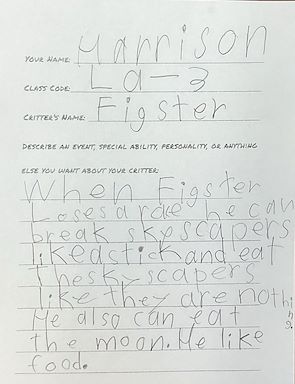 YOUR NAME: Harrison
CLASS CODE: La-3
CRITTER'S NAME: Figster
DESCRIBE AN EVENT, SPECIAL ABILITY, PERSONALITY, OR ANYTHING
ELSE YOU WANT ABOUT YOUR CRITTER:
When Figster
Loses a rdce he can
break skyscapers
like a stick and eat
the sky scapers
like they are nothing.
He also can eat
the moon. He like
food.